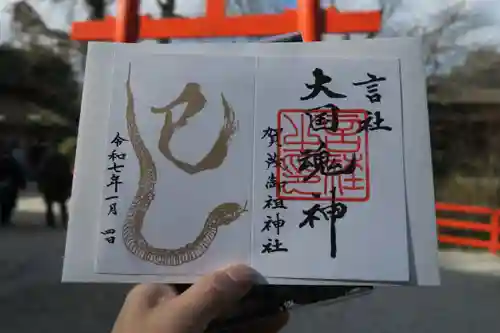 言社
大国魂神
賀茂御祖神社
巳
令和七年一月四日